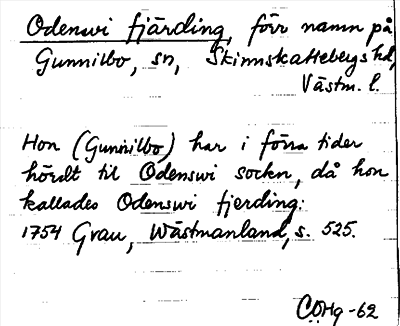 Odenswi fjärding, förr namn på
Gunnilbo, sn, Skinnskattebergs hd,
Västm. l.
Hon (Gunnilbo) har i förra tider
hördt til Odenswi sockn, då hon
kallades Odenswi fjerding:
1754 Grau, Wästmanland, s. 525.
COHg-62